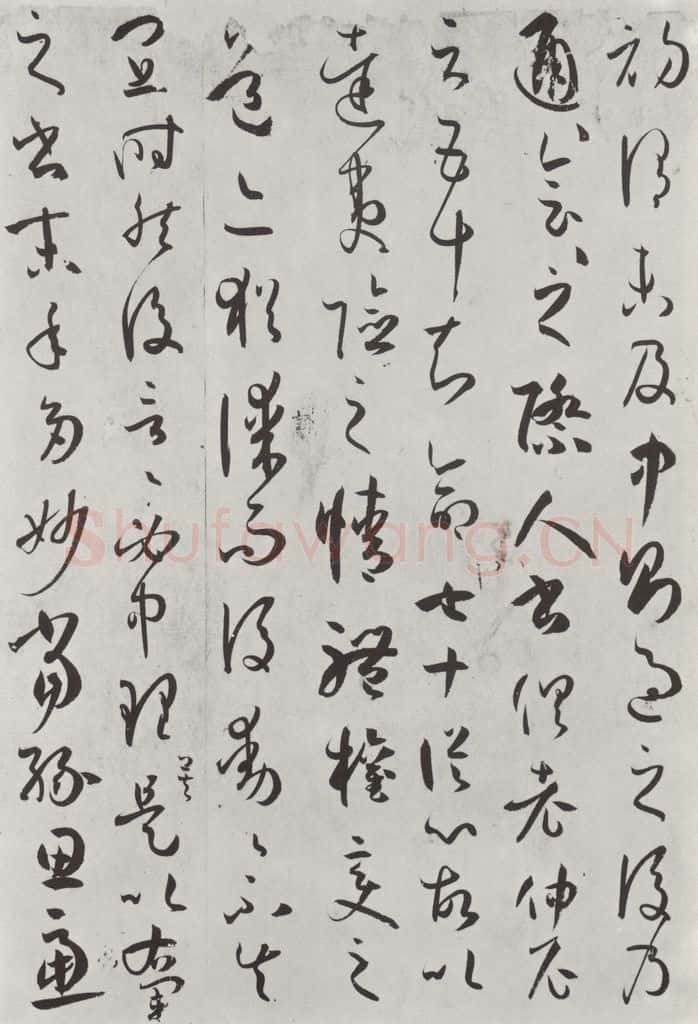 初謂未及中則過之後乃
通〻會〻之際人書俱老仲尼
云五十知命七十從心故以
達夷險之情體權變之
道亦猶謀而後動〻不失
宜時然後言〻必中理矣是以右軍
之書末年多妙當緣思慮
Shufawang.CN